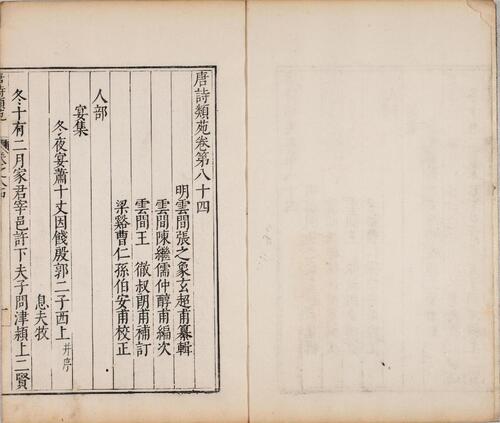 唐詩類苑卷第八十四
明雲間張之象玄超甫纂輯
雲間陳繼儒仲醇甫編次
雲間王徹叔朗甫補訂
梁谿曹仁孫伯安甫校正
人部
宴集
冬夜宴蕭十丈因餞殷郭二子西上并序
息夫牧
冬十有二月家君宰邑許下夫子問津潁上二賢
唐詩類苑